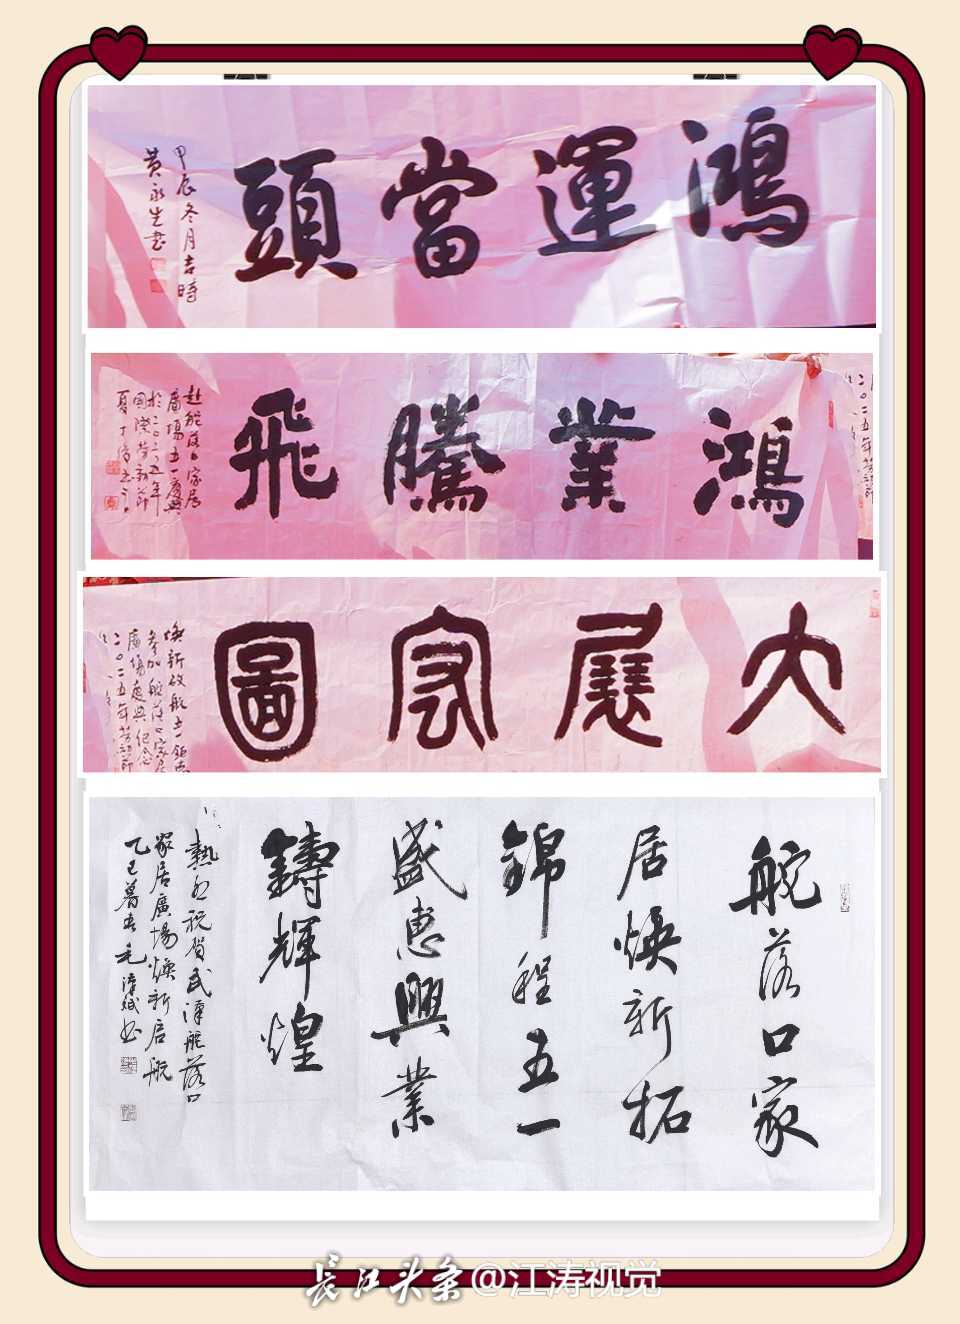 鴻運當頭
甲辰冬月吉時
黄永生書
二〇二五年勞動節
鴻業騰飛
赴舵落口家居
廣場五一慶典
於二〇二五年
國際勞動節
大展宏圖
焕新啟航五一
參加舵落口家居
廣場慶典紀念
二〇二五年勞動節
舵落口家
居焕新拓
錦程五一
盛惠興業
鑄輝煌
熱烈祝贺武漢舵落口
家居廣場焕新启航
乙巳暮春毛澤斌书
長江头条@江涛视觉